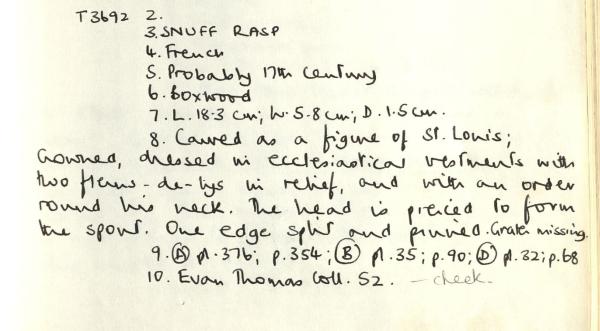 T3692 2.
3. SNUFF RASP
4. French
5. Probably 17th Century
6. Boxwood
7. L. 18.3 cm; W. 5.8 cm; D. 1.5 cm.
8. Carved as a figure of St. Louis;
crowned, dressed in ecclesiastical vestments with
two fleurs-de-lys in relief, and with an order
round his neck. The head is pierced to form
the spout. One edge split and pinned. Grater missing.
9. Ⓐ pl. 376; p. 354; Ⓑ pl. 35; p. 90; Ⓓ pl. 32; p. 68
10. Evan Thomas Coll. 52. - check.